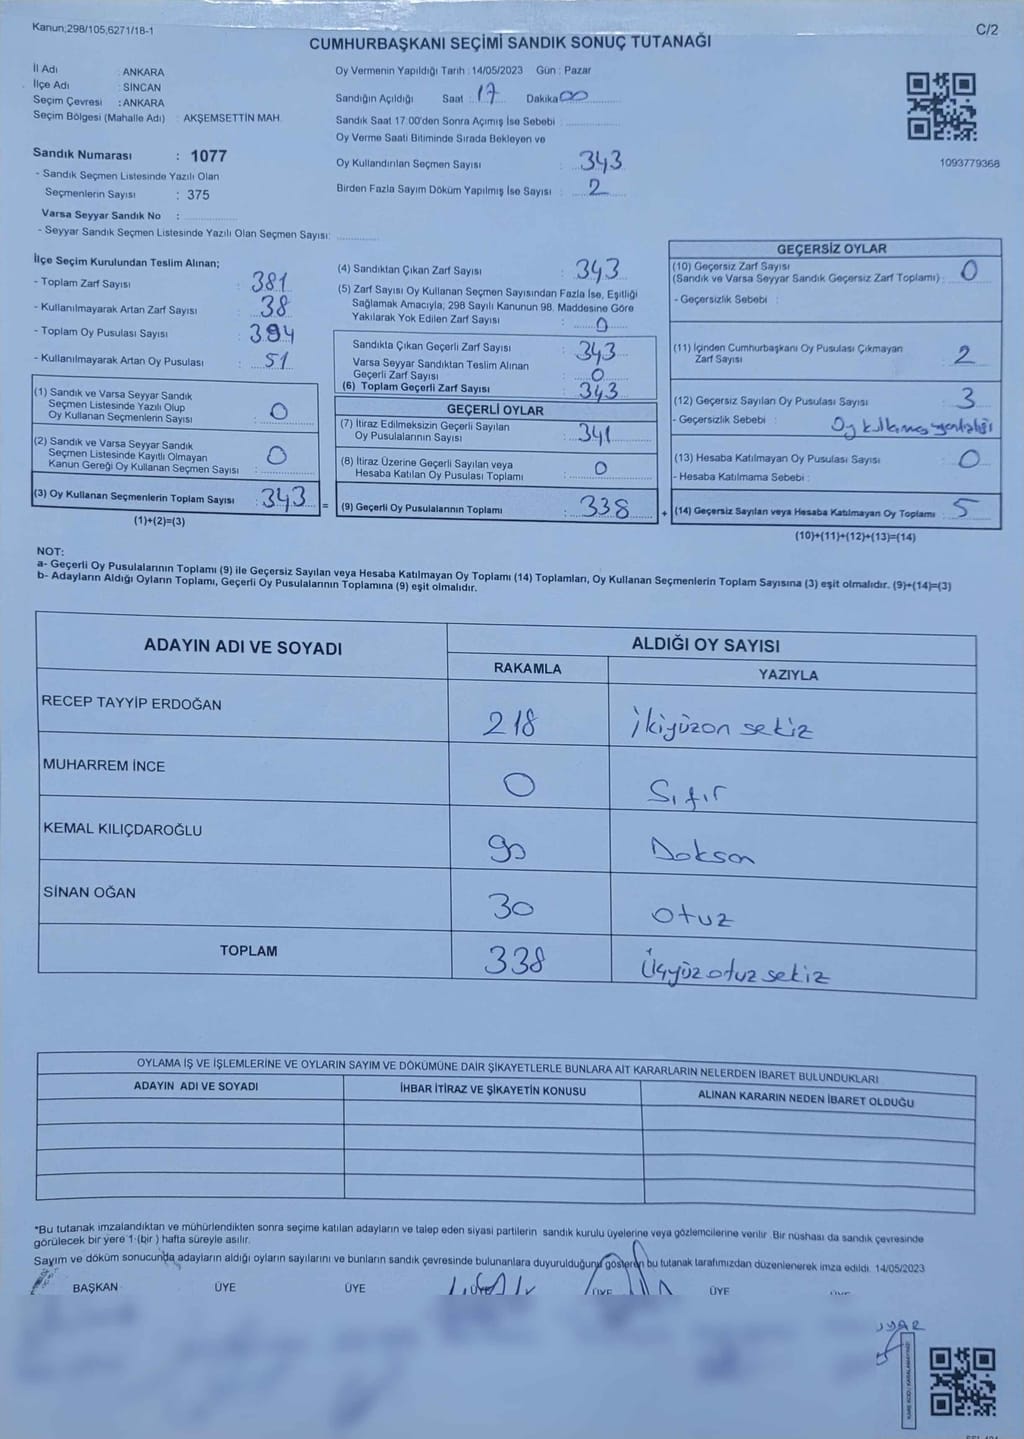 Kanun;298/105,6271/18-1
C/2
CUMHURBAŞKANI SEÇİMİ SANDIK SONUÇ TUTANAĞI
İl Adı : ANKARA
İlçe Adı : SİNCAN
Seçim Çevresi : ANKARA
Seçim Bölgesi (Mahalle Adı) : AKŞEMSETTİN MAH.
Sandık Numarası : 1077
- Sandık Seçmen Listesinde Yazılı Olan
Seçmenlerin Sayısı : 375
Varsa Seyyar Sandık No :
- Seyyar Sandık Seçmen Listesinde Yazılı Olan Seçmen Sayısı:
Oy Vermenin Yapıldığı Tarih : 14/05/2023 Gün : Pazar
Sandığın Açıldığı Saat : 17 Dakika 00
Sandık Saat 17:00'den Sonra Açımış İse Sebebi :
Oy Verme Saati Bitiminde Sırada Bekleyen ve
Oy Kullandırılan Seçmen Sayısı : 343
Birden Fazla Sayım Döküm Yapılmış İse Sayısı : 2
1093779368
İlçe Seçim Kurulundan Teslim Alınan;
- Toplam Zarf Sayısı : 381
- Kullanılmayarak Artan Zarf Sayısı : 38
- Toplam Oy Pusulası Sayısı : 394
- Kullanılmayarak Artan Oy Pusulası : 51
(1) Sandık ve Varsa Seyyar Sandık
Seçmen Listesinde Yazılı Olup
Oy Kullanan Seçmenlerin Sayısı : 0
(2) Sandık ve Varsa Seyyar Sandık
Seçmen Listesinde Kayıtlı Olmayan
Kanun Gereği Oy Kullanan Seçmen Sayısı : 0
(3) Oy Kullanan Seçmenlerin Toplam Sayısı : 343 =
(1)+(2)=(3)
(4) Sandıktan Çıkan Zarf Sayısı : 343
(5) Zarf Sayısı Oy Kullanan Seçmen Sayısından Fazla İse, Eşitliği
Sağlamak Amacıyla; 298 Sayılı Kanunun 98. Maddesine Göre
Yakılarak Yok Edilen Zarf Sayısı : 0
Sandıkta Çıkan Geçerli Zarf Sayısı : 343
Varsa Seyyar Sandıktan Teslim Alınan
Geçerli Zarf Sayısı : 0
(6) Toplam Geçerli Zarf Sayısı : 343
GEÇERLİ OYLAR
(7) İtiraz Edilmeksizin Geçerli Sayılan
Oy Pusulalarının Sayısı : 341
(8) İtiraz Üzerine Geçerli Sayılan veya
Hesaba Katılan Oy Pusulası Toplamı : 0
(9) Geçerli Oy Pusulalarının Toplamı : 338 +
GEÇERSİZ OYLAR
(10) Geçersiz Zarf Sayısı
(Sandık ve Varsa Seyyar Sandık Geçersiz Zarf Toplamı) : 0
- Geçersizlik Sebebi :
(11) İçinden Cumhurbaşkanı Oy Pusulası Çıkmayan
Zarf Sayısı : 2
(12) Geçersiz Sayılan Oy Pusulası Sayısı : 3
- Geçersizlik Sebebi : Oy kullanma yanlışlığı
(13) Hesaba Katılmayan Oy Pusulası Sayısı : 0
- Hesaba Katılmama Sebebi :
(14) Geçersiz Sayılan veya Hesaba Katılmayan Oy Toplamı : 5
(10)+(11)+(12)+(13)=(14)
NOT:
a- Geçerli Oy Pusulalarının Toplamı (9) ile Geçersiz Sayılan veya Hesaba Katılmayan Oy Toplamı (14) Toplamları, Oy Kullanan Seçmenlerin Toplam Sayısına (3) eşit olmalıdır. (9)+(14)=(3)
b- Adayların Aldığı Oyların Toplamı, Geçerli Oy Pusulalarının Toplamına (9) eşit olmalıdır.
ADAYIN ADI VE SOYADI
ALDIĞI OY SAYISI
RAKAMLA YAZIYLA
RECEP TAYYİP ERDOĞAN 218 İkiyüzon sekiz
MUHARREM İNCE 0 Sıfır
KEMAL KILIÇDAROĞLU 90 Doksan
SİNAN OĞAN 30 otuz
TOPLAM 338 Üçyüz otuz sekiz
OYLAMA İŞ VE İŞLEMLERİNE VE OYLARIN SAYIM VE DÖKÜMÜNE DAİR ŞİKAYETLERLE BUNLARA AİT KARARLARIN NELERDEN İBARET BULUNDUKLARI
ADAYIN ADI VE SOYADI İHBAR İTİRAZ VE ŞİKAYETİN KONUSU ALINAN KARARIN NEDEN İBARET OLDUĞU
*Bu tutanak imzalandıktan ve mühürlendikten sonra seçime katılan adayların ve talep eden siyasi partilerin sandık kurulu üyelerine veya gözlemcilerine verilir. Bir nüshası da sandık çevresinde
görülecek bir yere 1 (bir) hafta süreyle asılır.
Sayım ve döküm sonucunda adayların aldığı oyların sayılarını ve bunların sandık çevresinde bulunanlara duyurulduğunu gösteren bu tutanak tarafımızdan düzenlenerek imza edildi. 14/05/2023
BAŞKAN ÜYE ÜYE ÜYE ÜYE ÜYE